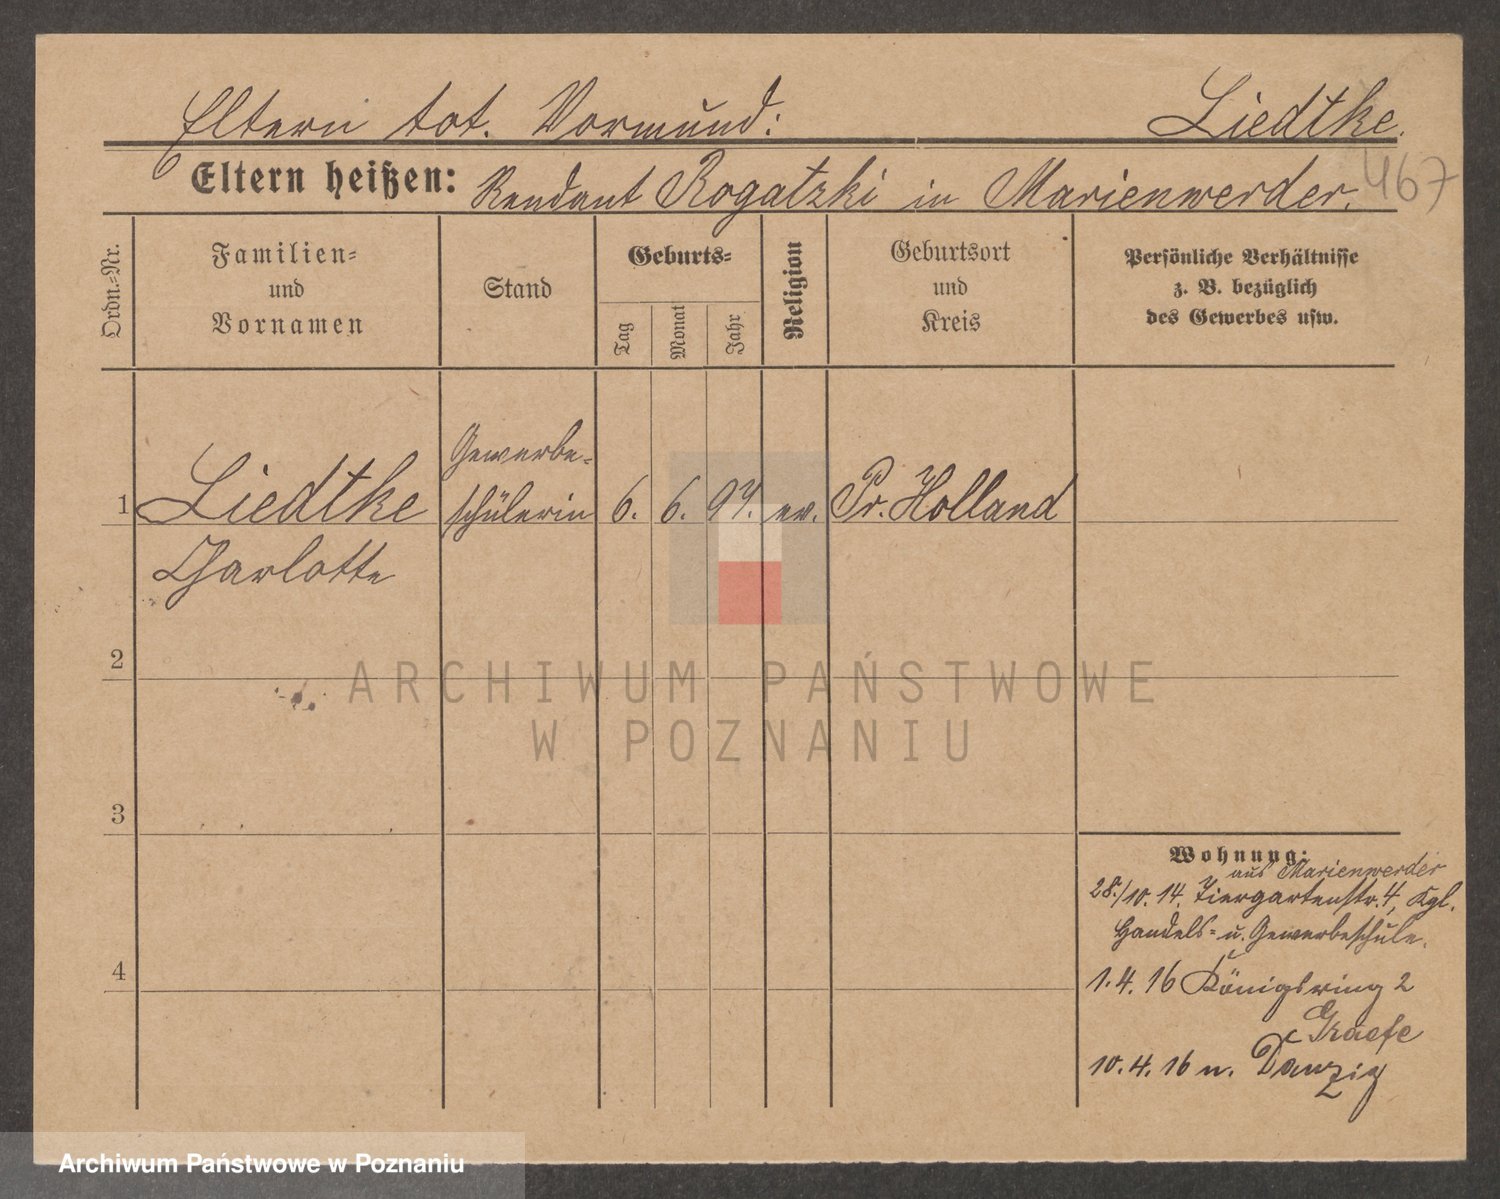 Eltern tot. Vormund: Liedtke.
Eltern heißen: Rendant Rogatzki in Marienwerder. 467
Ordn.=Nr.
Familien=
und
Vornamen
Stand
Geburts=
Tag
Monat
Jahr
Religion
Geburtsort
und
Kreis
Persönliche Verhältnisse
z. B. bezüglich
des Gewerbes usw.
Gewerbe=
1 Liedtke schülerin 6. 6. 97. ev. Pr. Holland
Charlotte
2
ARCHIWUM PAŃSTWOWE
W POZNANIU
3
Wohnung:
aus Marienwerder
28./10. 14. Tiergartenstr. 4, Kgl.
Handels= u. Gewerbeschule.
4
1. 4. 16 Königsring 2
Graefe
10. 4. 16 n. Danzig
Archiwum Państwowe w Poznaniu